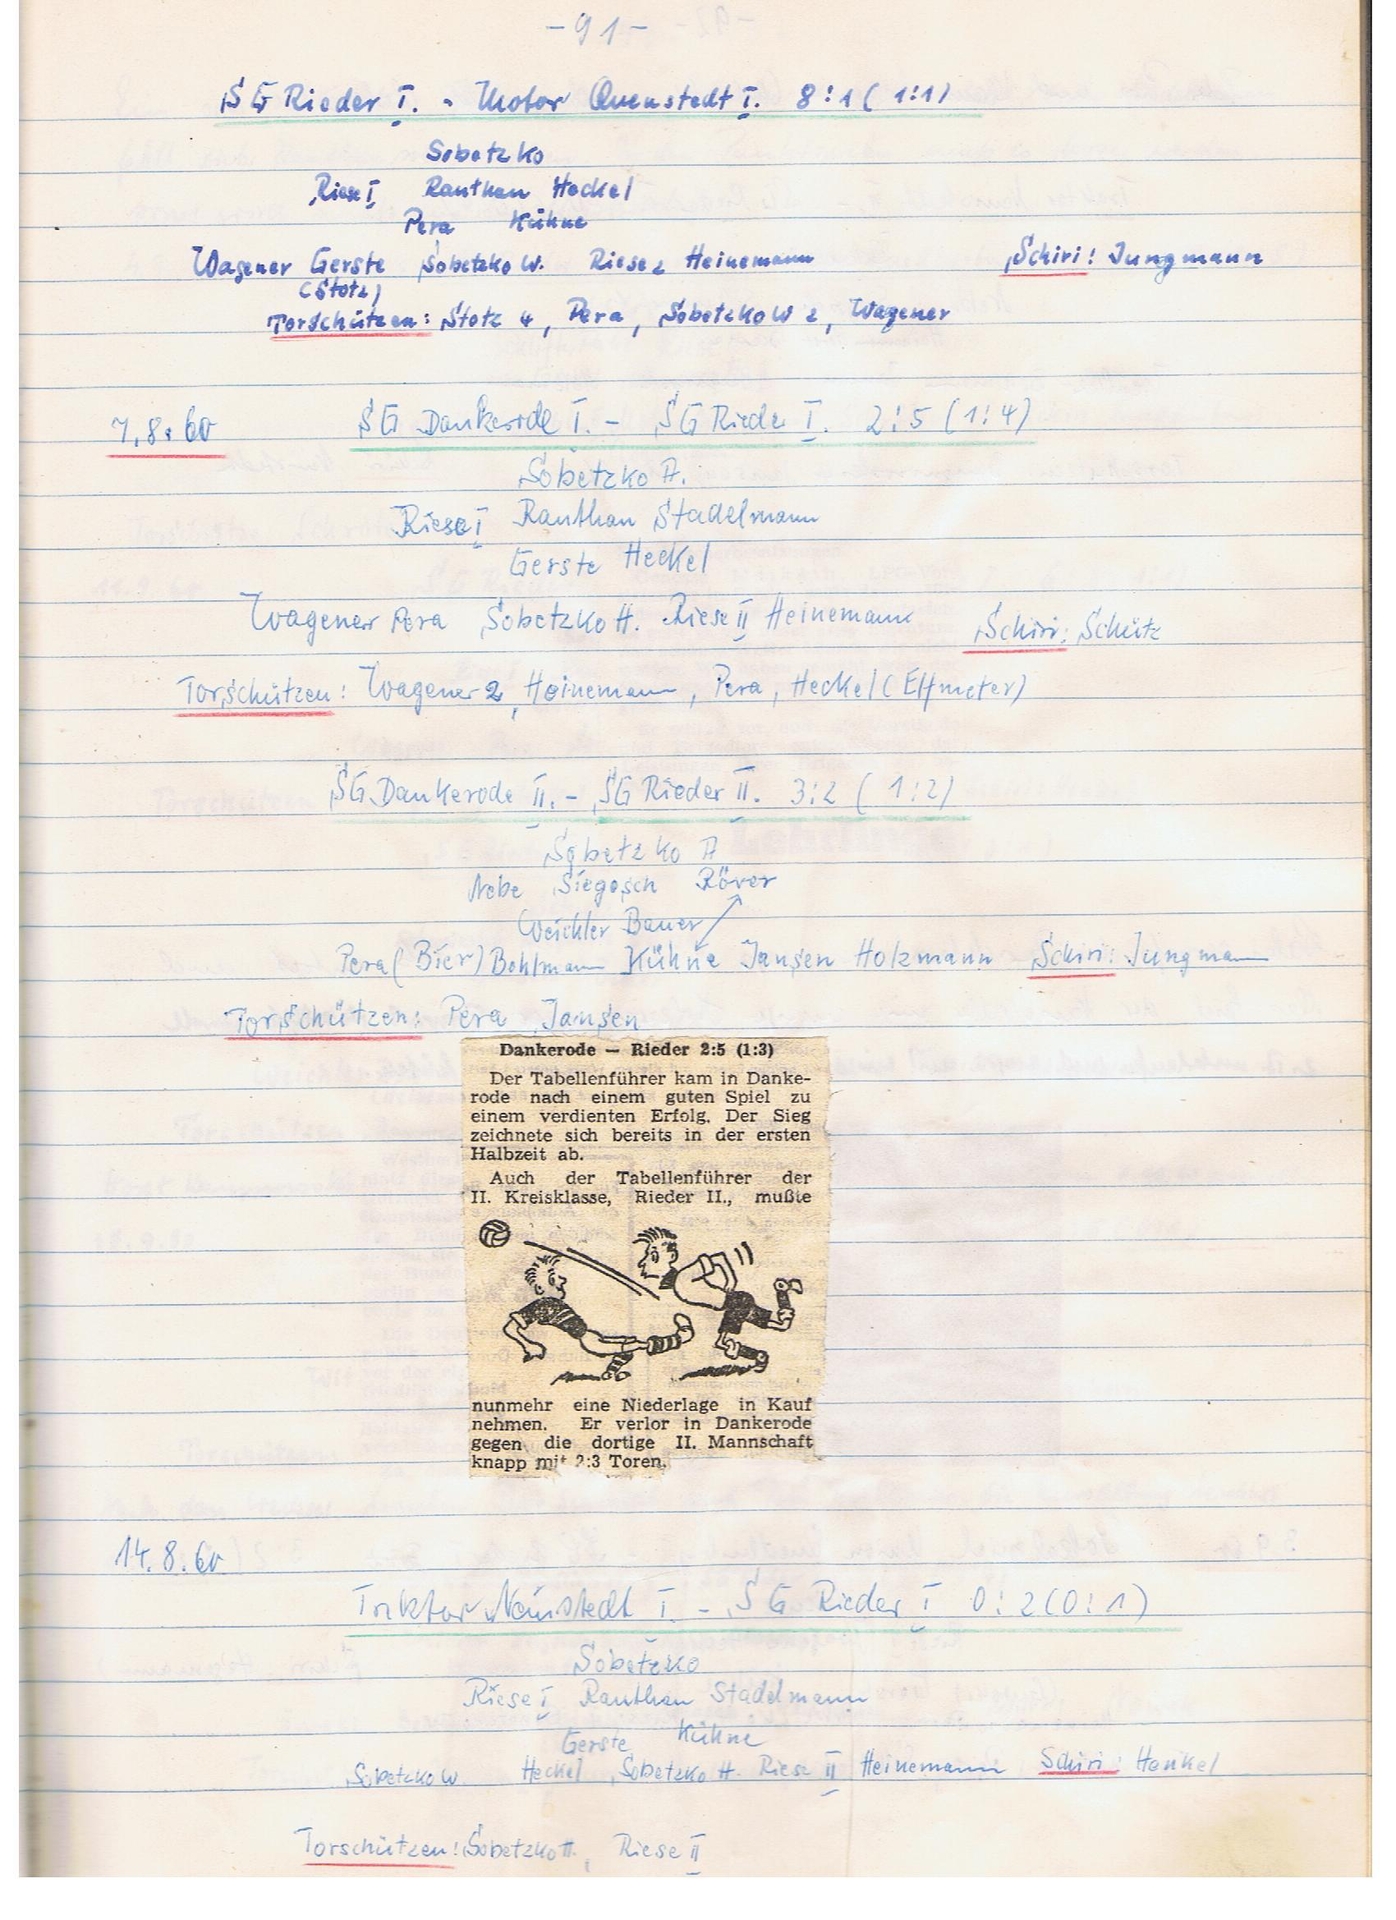 -91-
SG Rieder I. - Motor Quenstedt I. 8:1 (1:1)
Sobetzko
Riese I Ranthan Heckel
Pera Kühne
Wagener Gerste Sobetzko W. Riese 2 Heinemann Schiri: Jungmann
(Stotz)
Torschützen: Stotz 4, Pera, Sobetzko W 2, Wagener
7.8.60 SG Dankerode I. - SG Rieder I. 2:5 (1:4)
Sobetzko A.
Riese I Ranthan Stadelmann
Gerste Heckel
Wagener Pera Sobetzko H. Riese II Heinemann Schiri: Schütz
Torschützen: Wagener 2, Heinemann, Pera, Heckel (Elfmeter)
SG Dankerode II. - SG Rieder II. 3:2 (1:2)
Sobetzko A
Nebe Siegosch Röver
Weichler Bauer
Pera (Bier) Bohlmann Kühne Jansen Holzmann Schiri: Jungmann
Torschützen: Pera Jansen
Dankerode — Rieder 2:5 (1:3)
Der Tabellenführer kam in Danke-
rode nach einem guten Spiel zu
einem verdienten Erfolg. Der Sieg
zeichnete sich bereits in der ersten
Halbzeit ab.
Auch der Tabellenführer der
II. Kreisklasse, Rieder II., mußte
nunmehr eine Niederlage in Kauf
nehmen. Er verlor in Dankerode
gegen die dortige II. Mannschaft
knapp mit 2:3 Toren.
14.8.60
Traktor Neinstedt I. - SG Rieder I 0:2 (0:1)
Sobetzko
Riese I Ranthan Stadelmann
Gerste Kühne
Sobetzko W. Heckel Sobetzko H. Riese II Heinemann Schiri: Henkel
Torschützen: Sobetzko H, Riese II